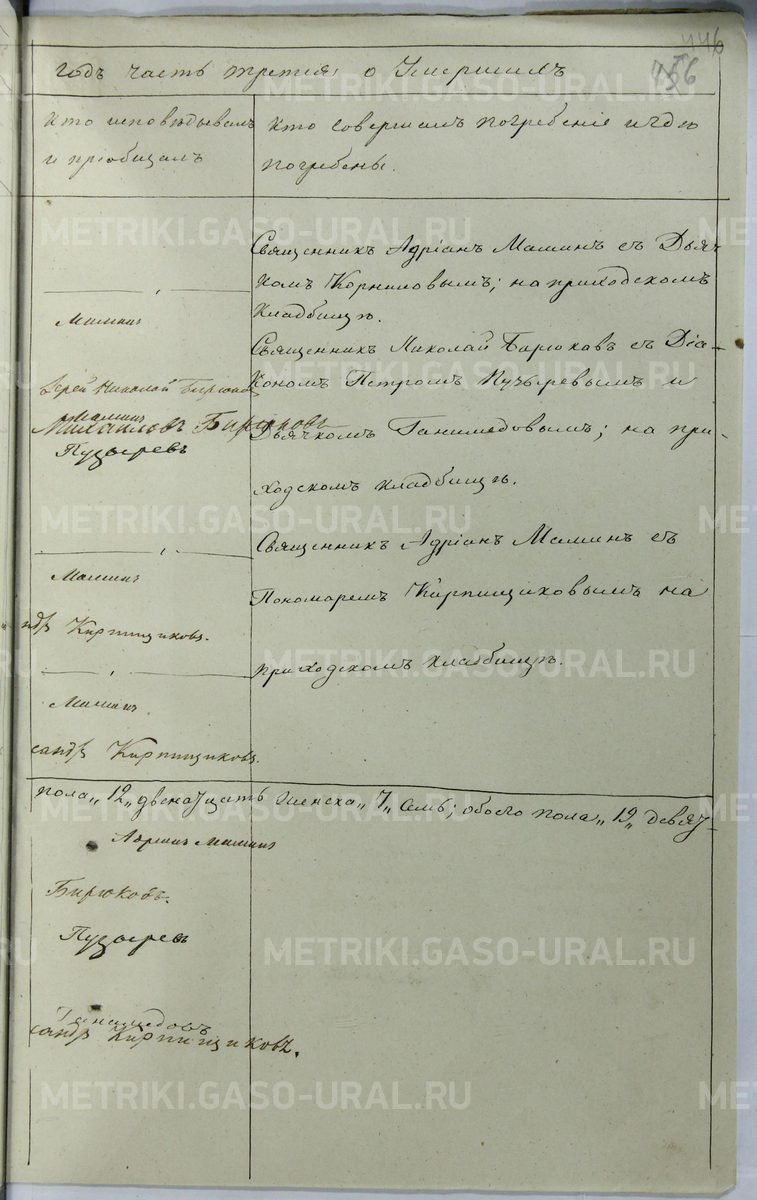 446
456
годъ часть третія, о Умершихъ
Кто исповѣдывалъ
и пріобщалъ
Кто совершалъ погребеніе и гдѣ
погребены.
Священникъ Адріанъ Маминъ съ Дьяч-
комъ Корниловымъ; на приходскомъ
кладбищѣ.
Маминъ
Священникъ Николай Бирюковъ съ Діа-
кономъ Петромъ Пузыревымъ и
Дьячкомъ Ганимедовымъ; на при-
ходскомъ кладбищѣ.
Іерей Николай Бирюковъ
Маминъ
Михаиловъ Бирюковъ
Пузыревъ
Священникъ Адріанъ Маминъ съ
Пономаремъ Кирпищиковымъ на
приходскомъ кладбищѣ.
Маминъ
ндръ Кирпищиковъ.
Маминъ
сандръ Кирпищиковъ.
пола „12„ двенадцать женска „7„ семь; обоего пола „19„ девят-
Адріанъ Маминъ
Бирюковъ.
Пузыревъ
Ганимедовъ
сандръ Кирпищиковъ.
METRIKI.GASO-URAL.RU